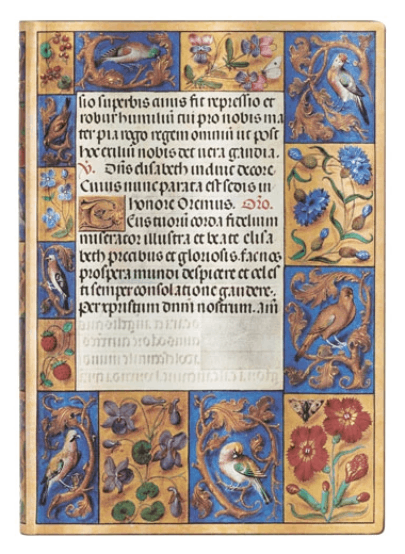 sio superbis cuius fit repressio et
robur humiliū cui pro nobis ma
ter pia rogo regem omniū ut post
hoc exiliū nobis det uera gaudia.
V. Dn̄s elisabeth induit decore.
Cuius nunc parata est sedis in
honore Oremus. Oro.
Tuorū corda fidelium
miserator illustra et beate elisa
beth precibus et gloriosis. fac nos
prospera mundi despicere et celes
ti semper consolatione gaudere.
Per xpristum dnm̄ nostrum. am̄